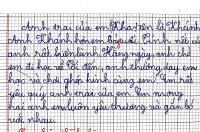 Anh trai của em Kha tên là Khánh
Anh Khánh hơn em 2 tuổi. Tính nết củ
anh rất hiền lành. Hằng ngày, anh chở
em đi học về. Tối đến, anh thường dạy em
học và chơi ghép hình cùng em. Em rất
yêu quý anh trai của em. Em mong
hai anh em luôn yêu thương và gắn bó
với nhau.